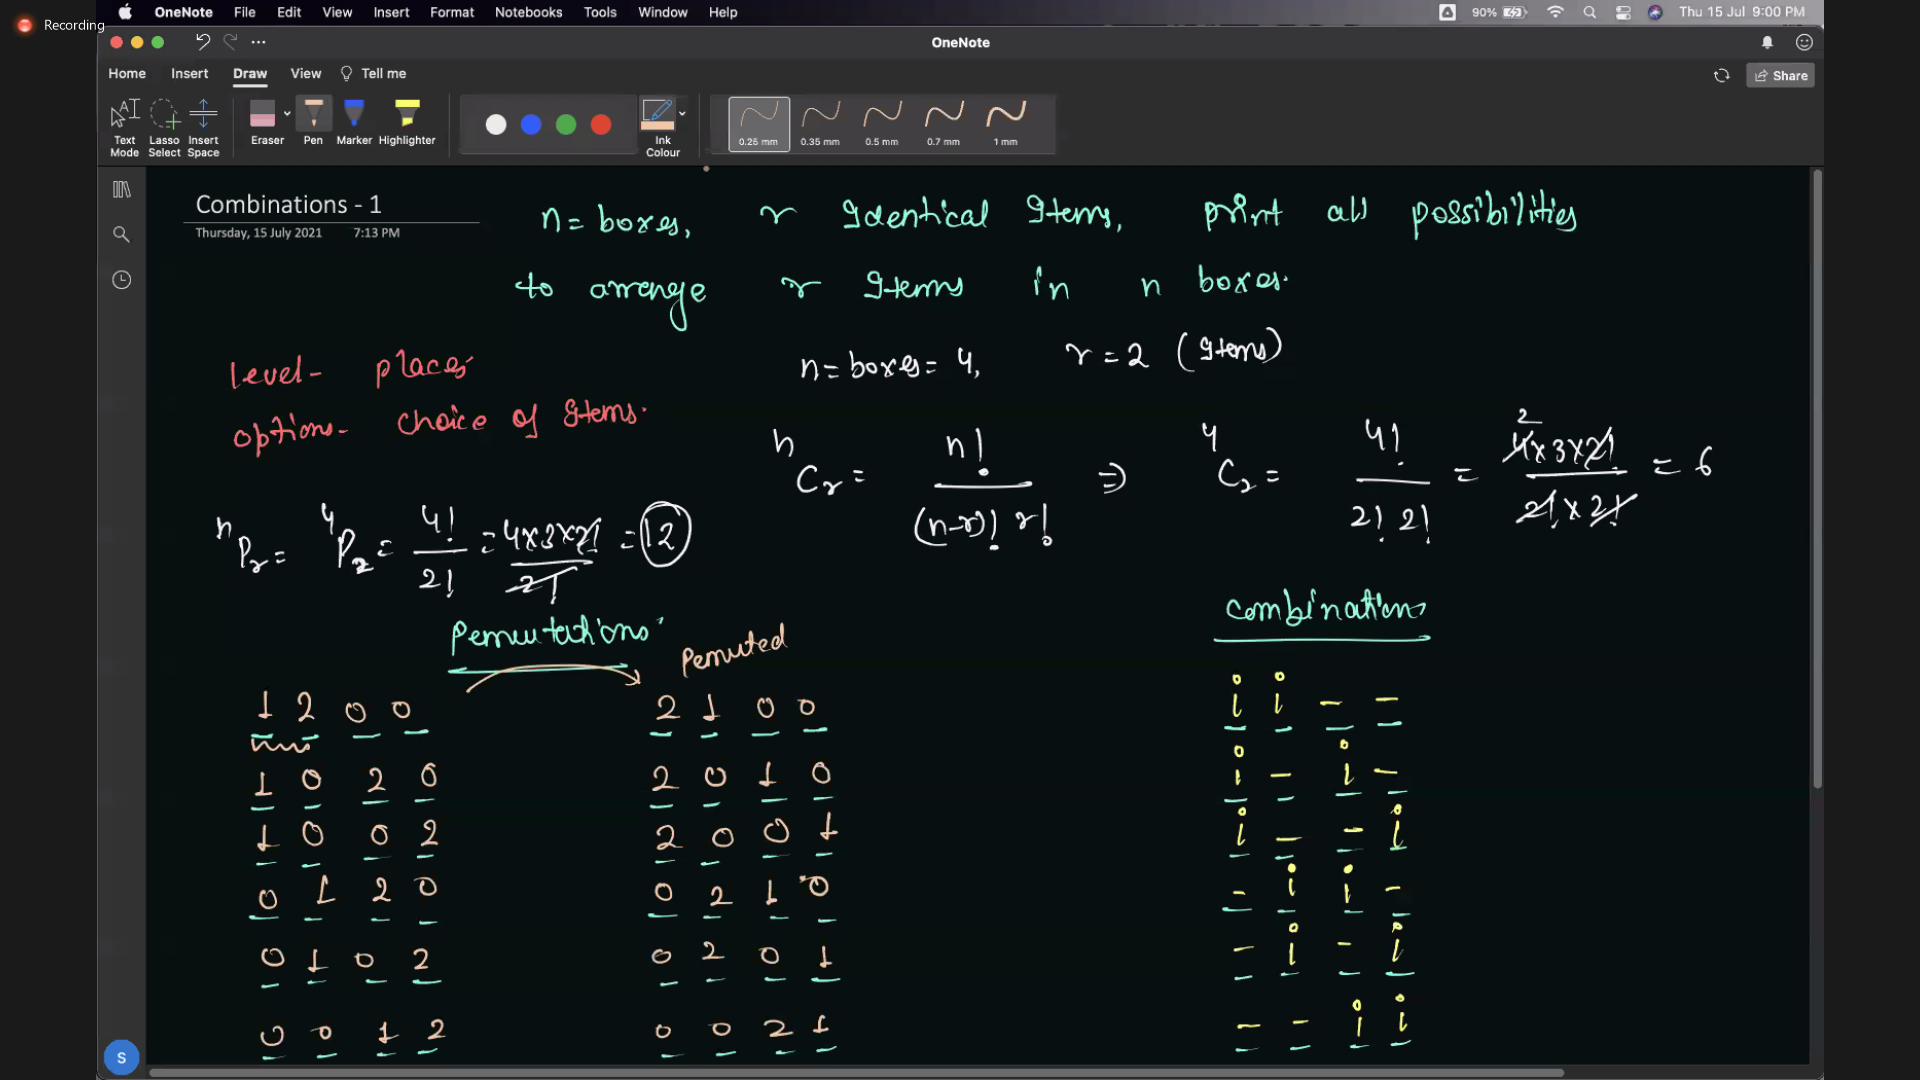 Recording
OneNote File Edit View Insert Format Notebooks Tools Window Help 90% Thu 15 Jul 9:00 PM
OneNote
Home Insert Draw View Tell me Share
Text Mode Lasso Select Insert Space Eraser Pen Marker Highlighter Ink Colour 0.25 mm 0.35 mm 0.5 mm 0.7 mm 1 mm
Combinations - 1
Thursday, 15 July 2021 7:13 PM
n = boxes, r Identical Items, print all possibilities
to arrange r Items in n boxes.
n = boxes = 4, r = 2 (Items)
level - places
options - choice of Items.
nCr = n! / (n-r)! r! ⇒ 4C2 = 4! / 2! 2! = 4x3x2! / 2! x 2! = 6
2
nPr = 4P2 = 4! / 2! = 4x3x2! / 2! = 12
Permutations
Permuted
combinations
1 2 0 0 2 1 0 0 i i - -
1 0 2 0 2 0 1 0 i - i -
1 0 0 2 2 0 0 1 i - - i
0 1 2 0 0 2 1 0 - i i -
0 1 0 2 0 2 0 1 - i - i
0 0 1 2 0 0 2 1 - - i i
S